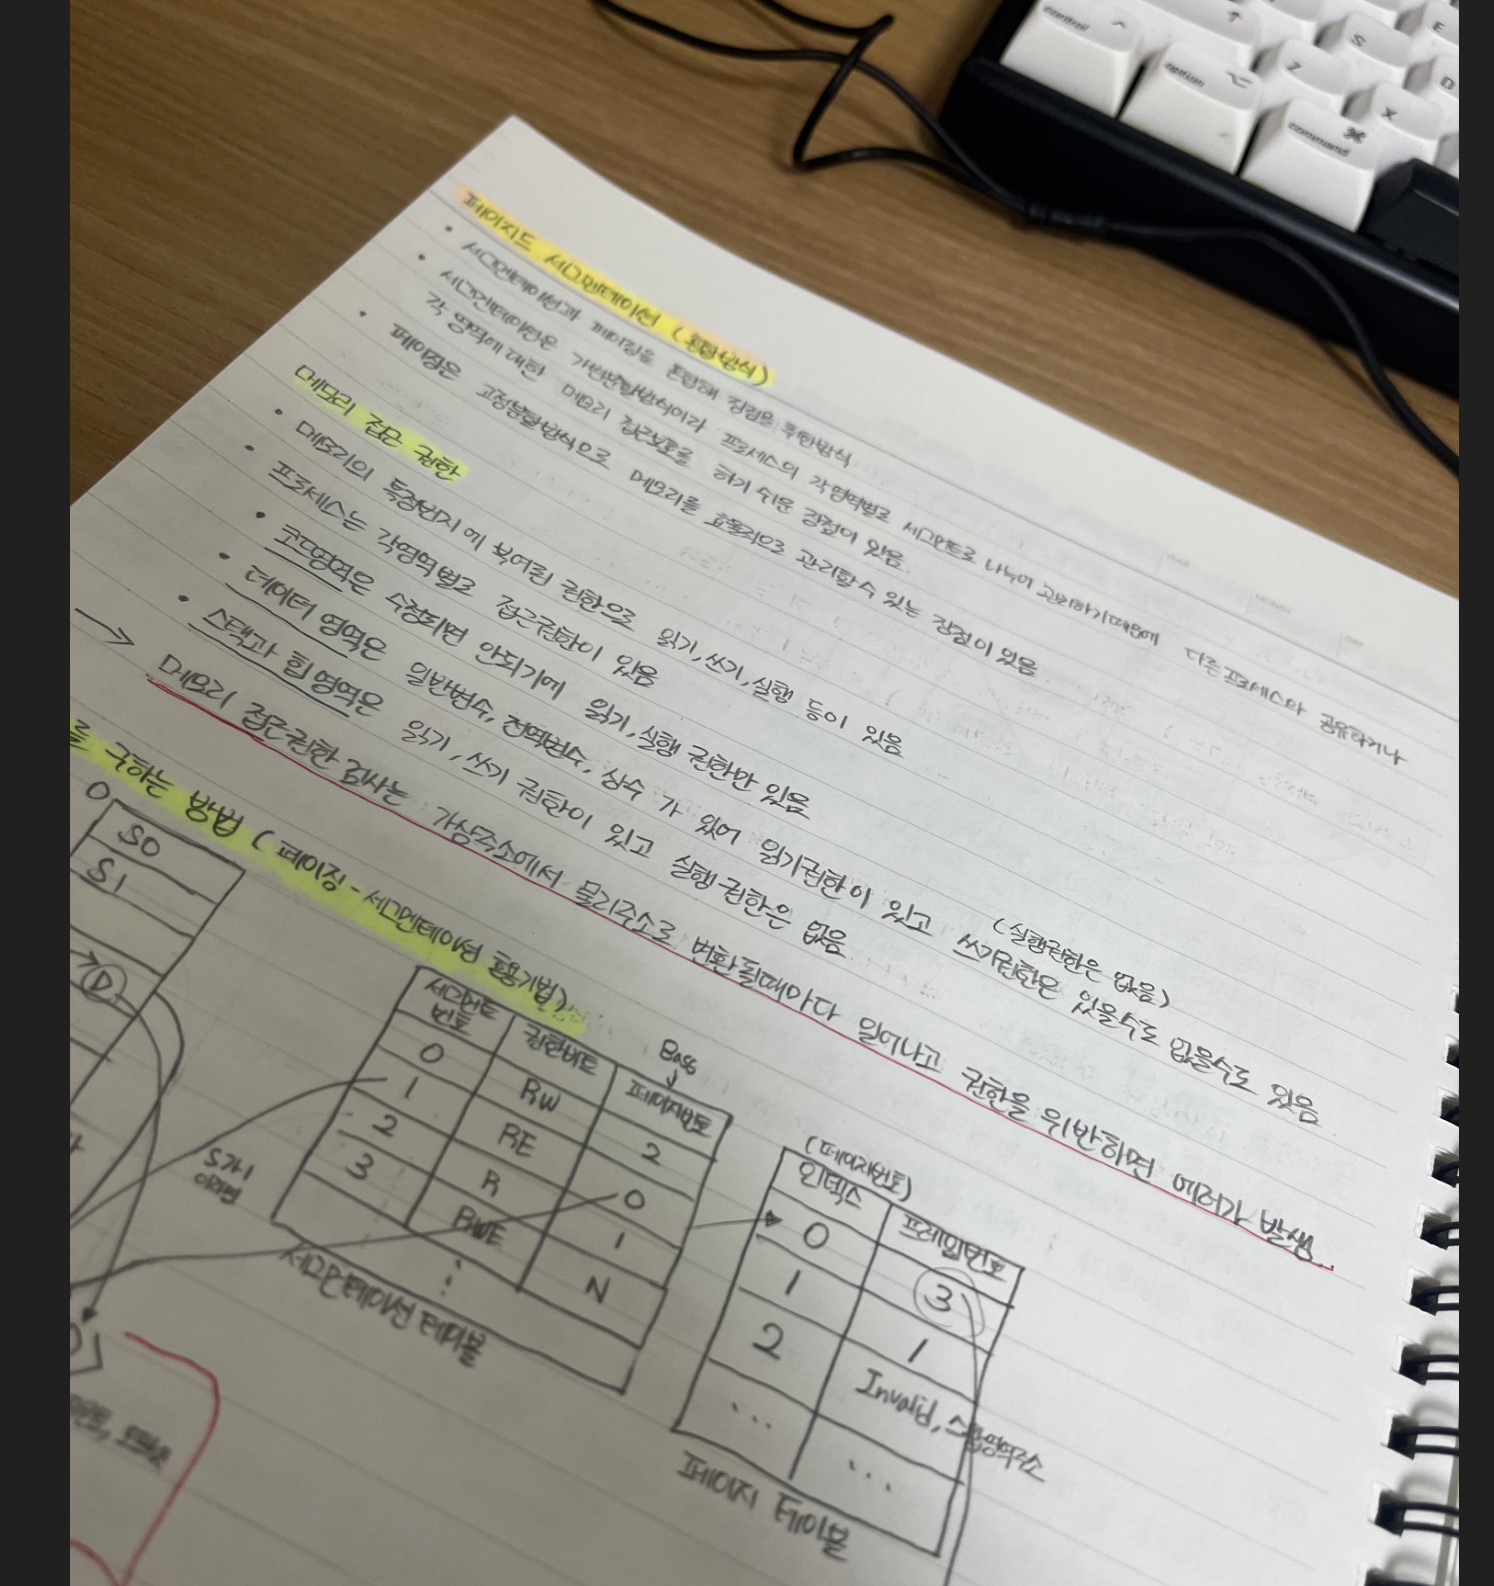 control
option
command
Z
X
S
E
D
페이지드 세그멘테이션 (혼합방식)
• 세그멘테이션과 페이징을 혼합해 장점을 취한방식
• 세그멘테이션은 가변분할방식이라 프로세스의 각 영역별로 세그먼트로 나누어 관리하기때문에 다른프로세스와 공유하거나
각 영역에 대한 메모리 접근보호를 하기 쉬운 장점이 있음
• 페이징은 고정분할방식으로 메모리를 효율적으로 관리할수 있는 장점이 있음
메모리 접근 권한
• 메모리의 특정번지에 부여된 권한으로 읽기, 쓰기, 실행 등이 있음
• 프로세스는 각영역별로 접근권한이 있음
• 코드영역은 수정되면 안되기에 읽기, 실행 권한만 있음
• 데이터 영역은 일반변수, 전역변수, 상수 가 있어 읽기권한이 있고 쓰기권한은 있을수도 없을수도 있음
(실행권한은 없음)
• 스택과 힙 영역은 읽기, 쓰기 권한이 있고 실행권한은 없음
→ 메모리 접근권한 검사는 가상주소에서 물리주소로 변환될때마다 일어나고 권한을 위반하면 에러가 발생..
를 구하는 방법 (페이징-세그멘테이션 혼용기법)
0
S0
S1
D
S가 1
이라면
세그먼트 번호 권한비트 페이지번호
Base
↓
0 RW 2
1 RE 0
2 R 1
3 RWE N
⋮
세그먼테이션 테이블
(페이지번호)
인덱스 프레임번호
0 3
1 1
2 Invalid, 스왑영역주소
... ...
페이지 테이블